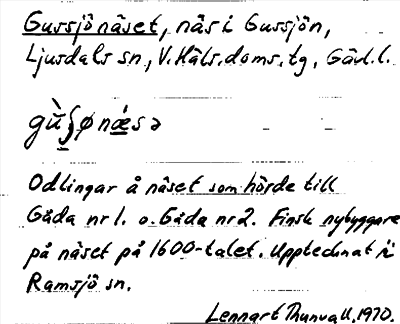 Gussjönäset, näs i Gussjön,
Ljusdals sn., V. Häls. doms. tg, Gävl. l.
gùʃønǽsə
Odlingar å näset som hörde till
Gåda nr 1. o. Gåda nr 2. Finsk nybyggare
på näset på 1600-talet. Upptecknat i
Ramsjö sn.
Lennart Thunvall, 1970.